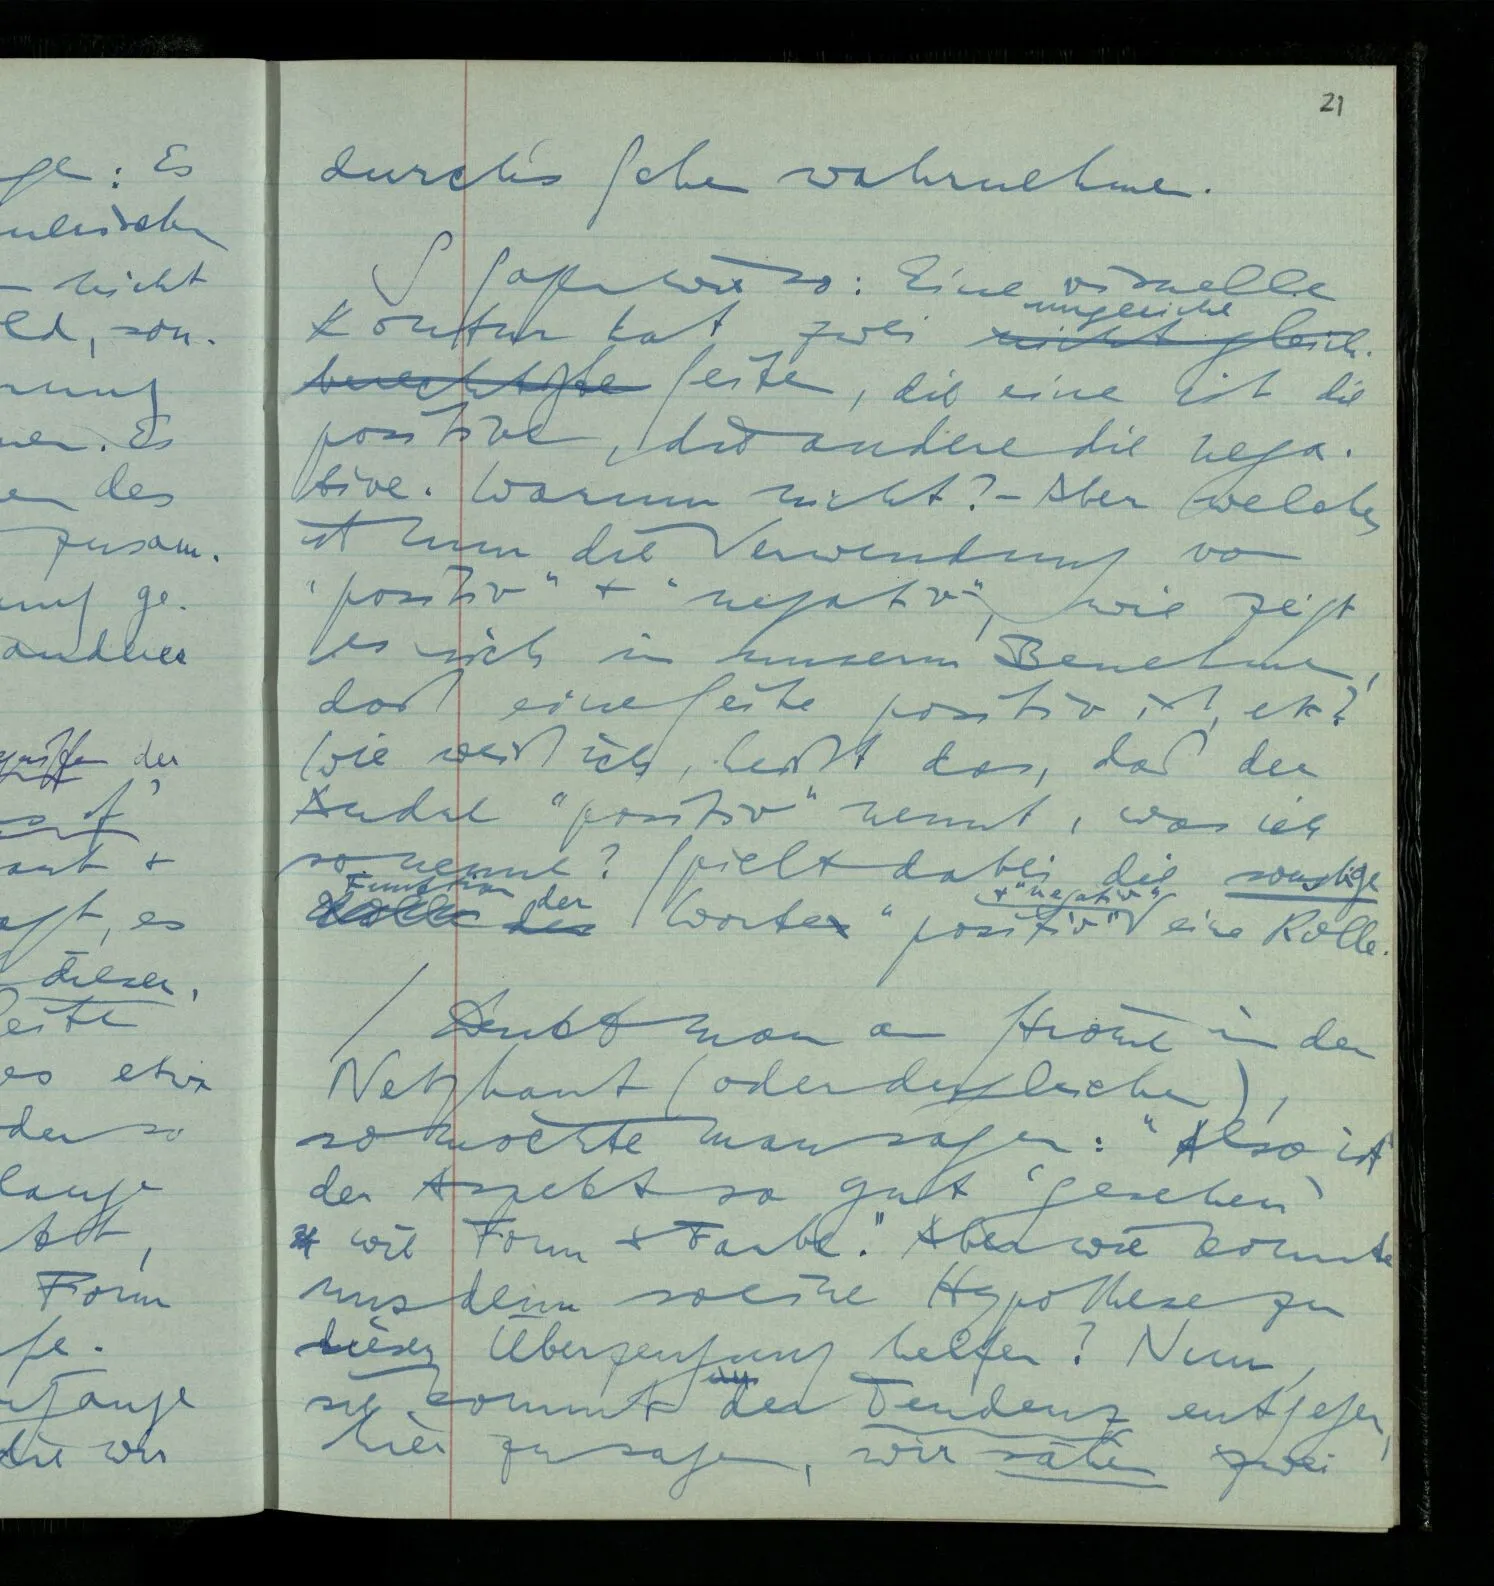 ge: Es
nicht
ld, son-
rung
nen. Es
en des
zusam-
ung ge-
andere
der
aut +
aft, es
dieser,
Seite
es etwa
oder so
lange
ist,
Form
fe.
die wir
21
durch's Sehen wahrnehmen.
S Sagen wir so: Eine visuelle
ungleiche
Kontur hat zwei nicht gleich-
berechtigte Seiten, die eine ist die
positive, die andere die nega-
tive. Warum nicht? – Aber welches
ist nun die Verwendung von
"positiv" + "negativ", wie zeigt
es sich in unserm Benehmen,
daß eine Seite positiv ist, etc?
Wie weiß ich, heißt das, daß der
Andre "positiv" nennt, was ich
so nenne? Spielt dabei die sonstige
Funktion der + "negativ"
Rolle des Wortes "positiv" eine Rolle.
/ Denkt man an Ströme in der
Netzhaut (oder dergleichen),
so möchte man sagen: "Also ist
der Aspekt so gut 'gesehen'
wie Form + Farbe." Aber wie konnte
uns denn so eine Hypothese zu
dieser Überzeugung helfen? Nun,
sie kommt der Tendenz entgegen,
hier zu sagen, wir sähen zwei